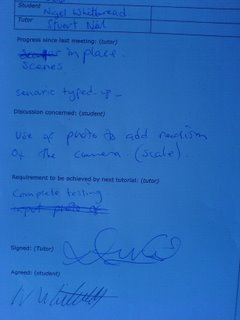 Student
Nigel Whitbread
Tutor
Stuart
Progress since last meeting: (tutor)
in place.
Scenes
scenario typed up -
Discussion concerned: (student)
Use of photo to add realism
of the camera. (scale).
Requirement to be achieved by next tutorial: (tutor)
Complete testing
input photo of
Signed: (Tutor)
Agreed: (student)